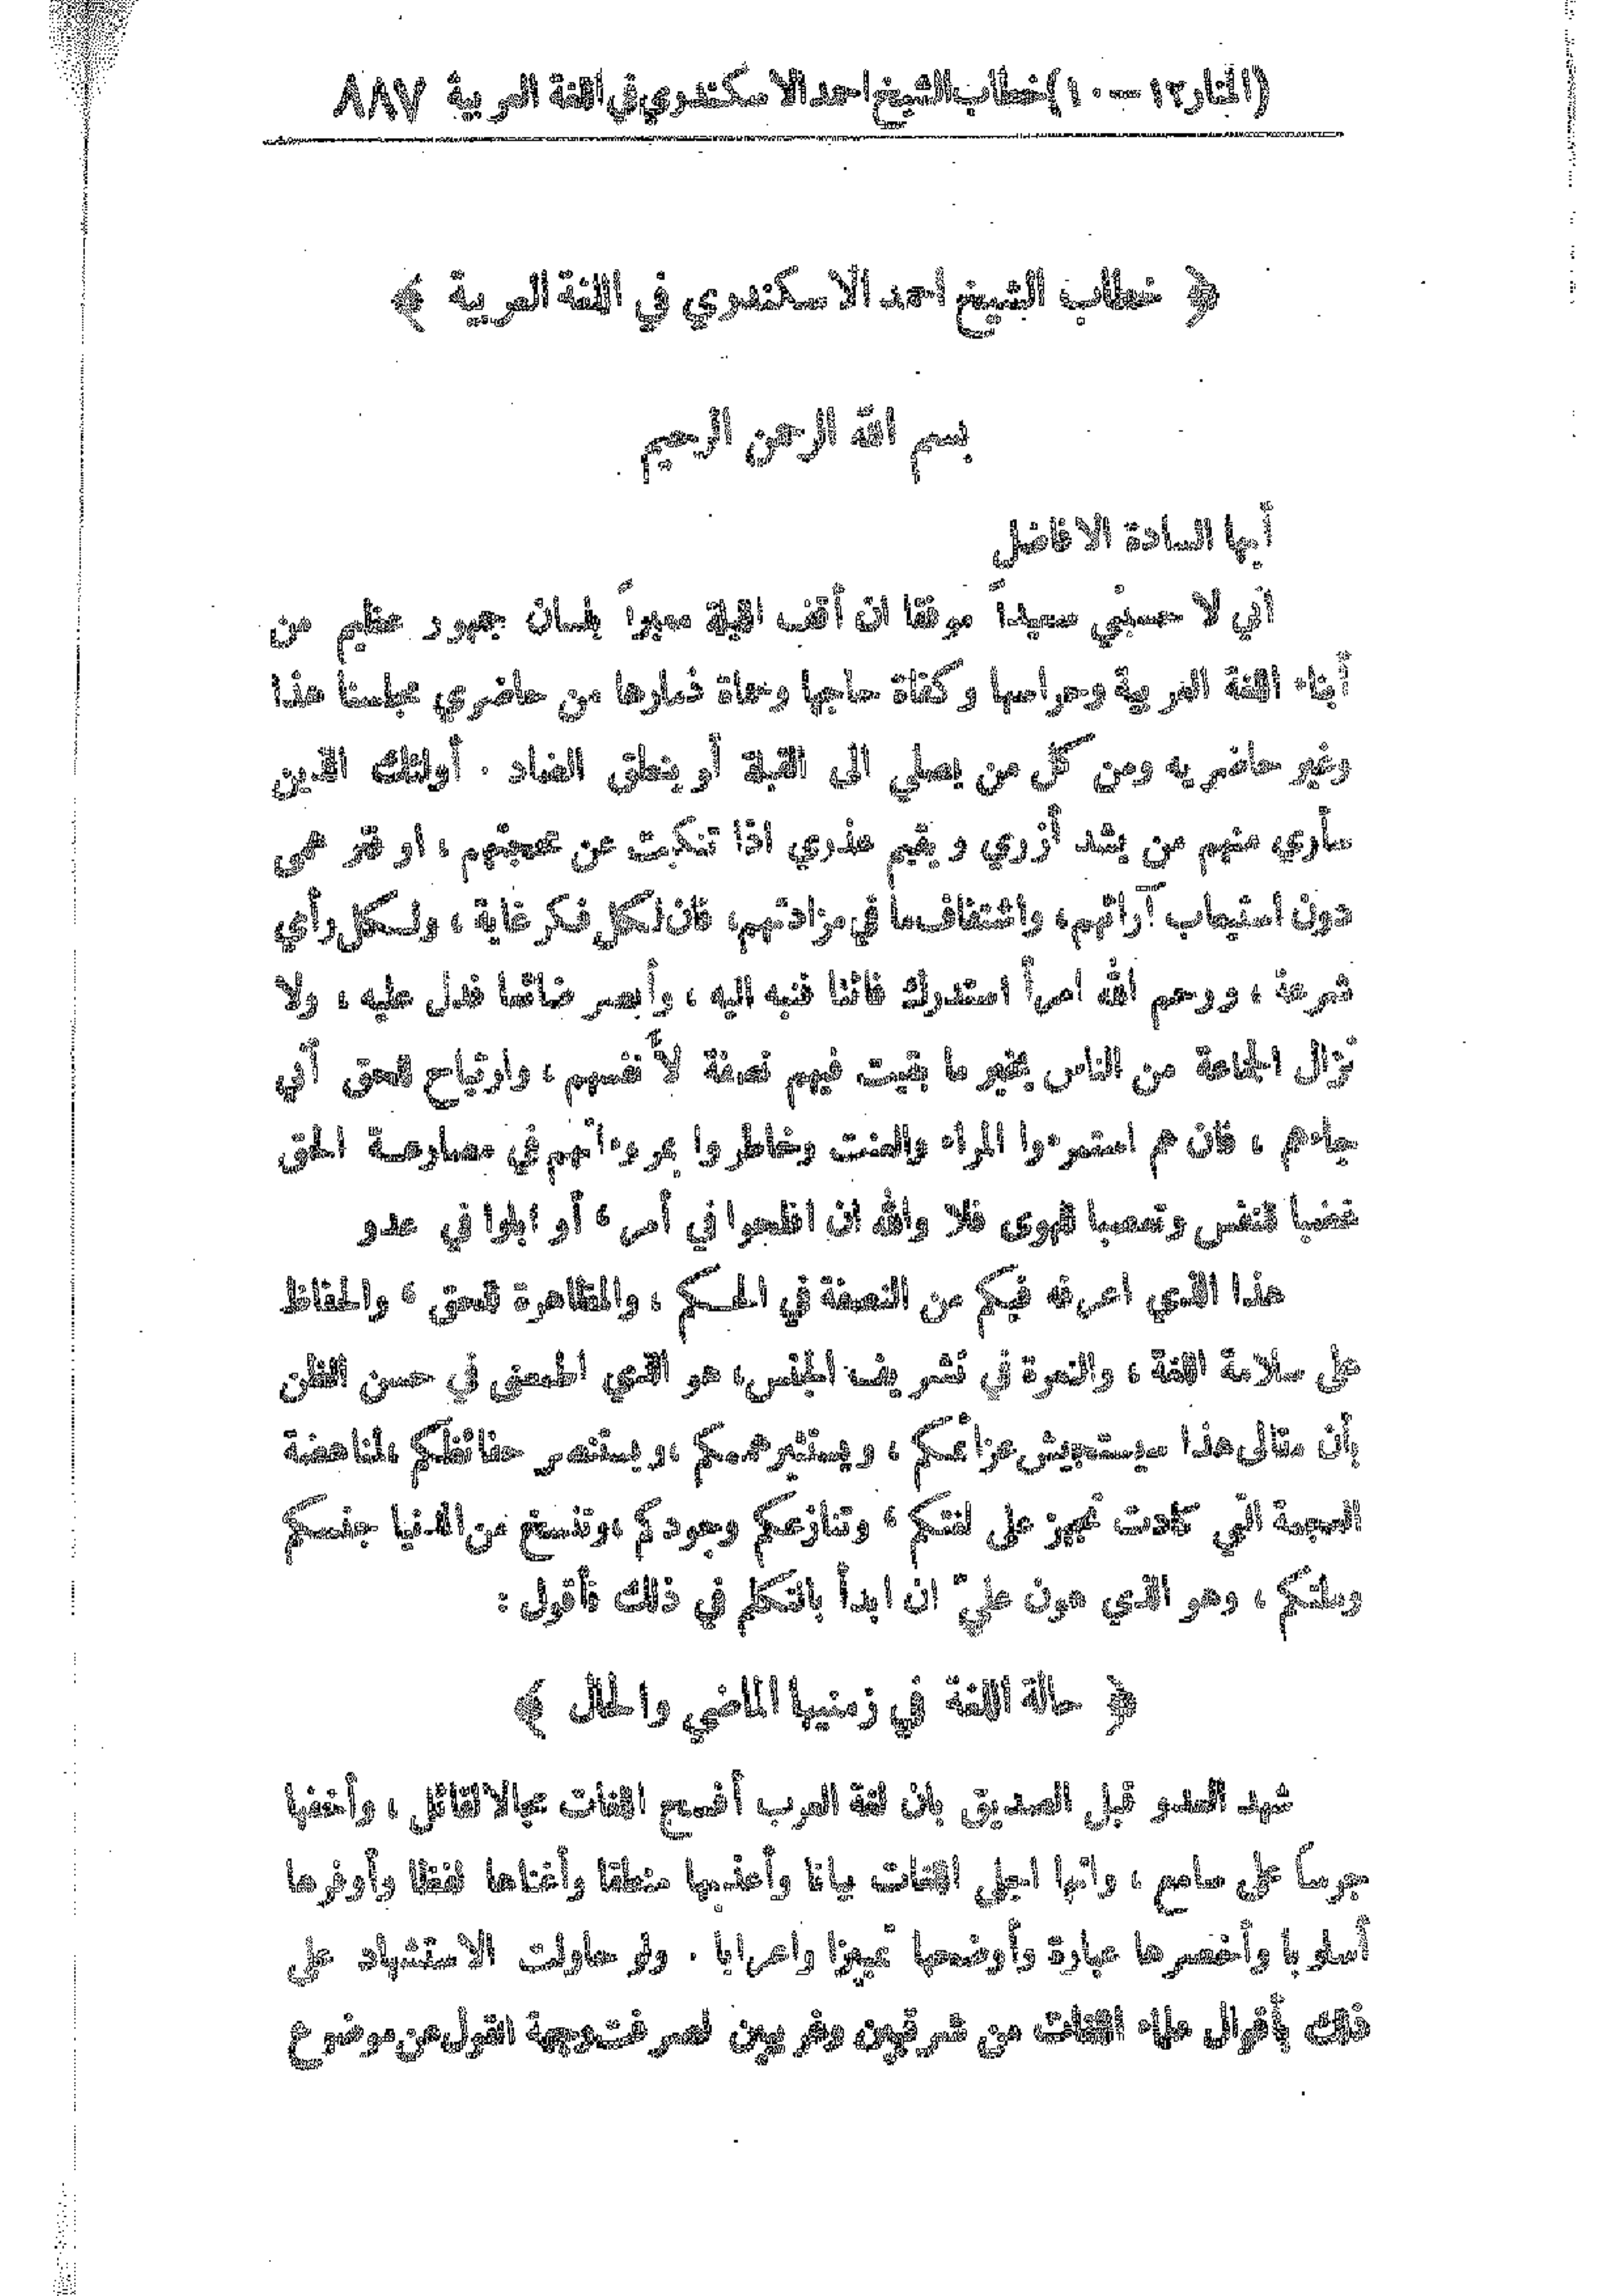 (المنار ١٢ — ١٠) خطاب الشيخ احمد الاسكندري في اللغة العربية ٨٨٧
﴿ خطاب الشيخ احمد الاسكندري في اللغة العربية ﴾
بسم الله الرحمن الرحيم
أيها السادة الافاضل
اني لا حسبني سعيداً موفقا ان أقف الليلة معبراً بلسان جمهور عظيم من
أبناء اللغة العربية وحراسها وكفاة حاجها وحماة ذمارها من حاضري مجلسنا هذا
وغير حاضريه ومن كل من يصلي الى القبلة أو ينطق الضاد . أولئك الذين
سأرى منهم من يشد أزري ويقيم عذري اذا تنكبت عن محجتهم ، او قصر همى
دون استيعاب آرائهم، واشتفاف ما في مزادتهم، فان لكل فكر غاية ، ولكل رأي
شرعة ، ورحم الله امرأ استدرك فائتا فنبه اليه ، وأبصر ضائعا فدل عليه ، ولا
تزال الجماعة من الناس بخير ما بقيت فيهم نصفة لأ نفسهم ، وارتياح للحق أنى
جاءهم ، فان هم استمرءوا المراء والعنت وخاطروا بمروءاتهم في مصارعة الحق
غضبا للنفس وتعصبا للهوى فلا والله ان افلحوا في أمر ، أو ابلوا في عدو
هذا الذي اعرفه فيكم من النصفة في الحكم ، والمظاهرة للحق ، والحفاظ
على سلامة اللغة ، والنعرة في تشريف الجنس، هو الذي اطمعني في حسن الظن
بأن مقالي هذا سيستجيش عزائمكم ، ويستثير هممكم ، ويستنصر حفائظكم ، لمناهضة
العجمة التي كادت تجهز على لغتكم ، وتنازعكم وجودكم ، وتنسخ من الدنيا جنسكم
وملتكم ، وهو الذي هون عليّ ان ابدأ بالتكلم في ذلك فأقول :
﴿ حالة اللغة في زمنيها الماضي والحال ﴾
شهد العدو قبل الصديق بان لغة العرب أفسح اللغات مجالا لقائل ، وأخفها
جرساً على سامع ، وانها اجلى اللغات بيانا وأعذبها منطقا وأغناها لفظا وأوفرها
أسلوبا وأخصرها عبارة وأوضحها تمييزا واعرابا . ولو حاولت الاستشهاد على
ذلك بأقوال علماء اللغات من شرقيين وغربيين لصرفت وجهة القول عن موضوع